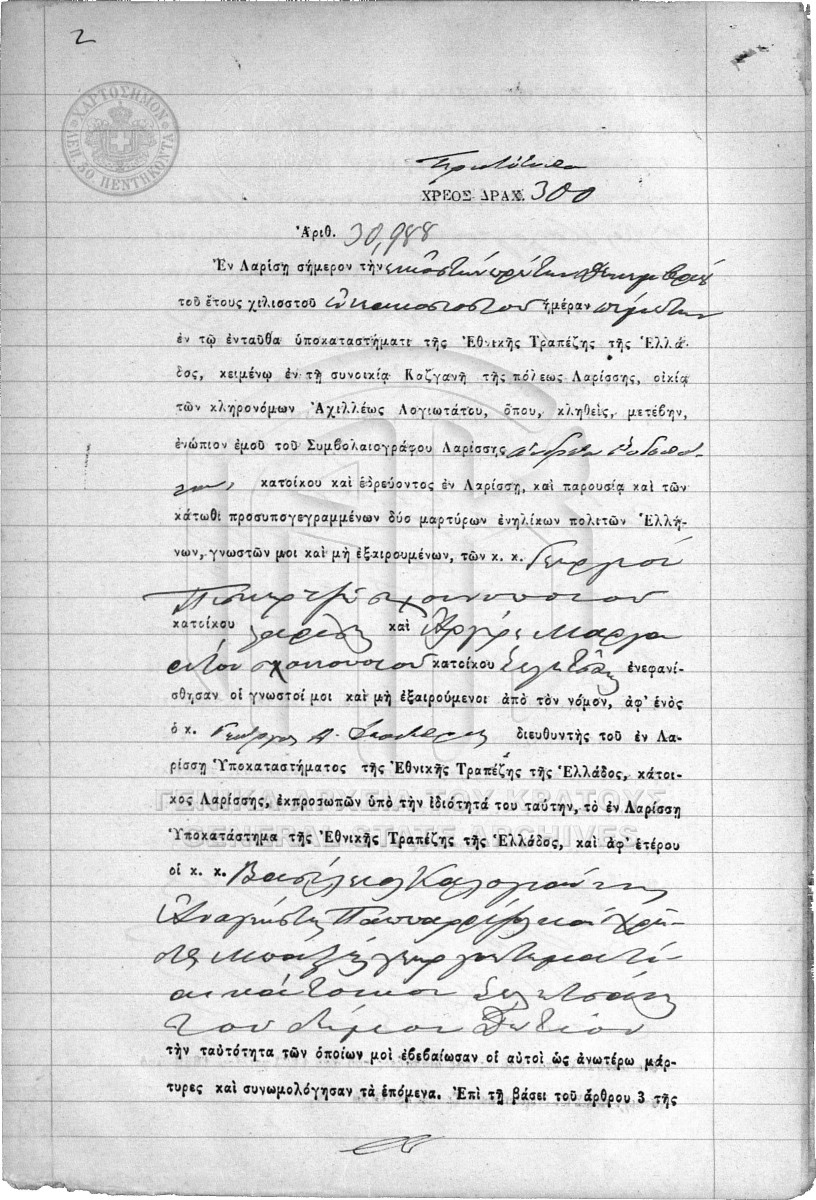 2
ΧΑΡΤΟΣΗΜΟΝ
ΛΕΠ. 50. ΠΕΝΤΗΚΟΝΤΑ
ΧΡΕΟΣ ΔΡΑΧ. 300
Ἀριθ. 30,988
Ἐν Λαρίσῃ σήμερον τὴν εἰκοστὴν πρώτην Δεκεμβρίου
τοῦ ἔτους χιλιοστοῦ ἐννεακοσιοστοῦ ἡμέραν πέμπτην
ἐν τῷ ἐνταῦθα ὑποκαταστήματι τῆς Ἐθνικῆς Τραπέζης τῆς Ἑλλά-
δος, κειμένῳ ἐν τῇ συνοικίᾳ Καζγανῆ τῆς πόλεως Λαρίσσης, οἰκίᾳ
τῶν κληρονόμων Ἀχιλλέως Λογιωτάτου, ὅπου, κληθεὶς, μετέβην,
ἐνώπιον ἐμοῦ τοῦ Συμβολαιογράφου Λαρίσσης Ἀνδρέα
κατοίκου καὶ ἑδρεύοντος ἐν Λαρίσσῃ, καὶ παρουσίᾳ καὶ τῶν
κάτωθι προσυπογεγραμμένων δύο μαρτύρων ἐνηλίκων πολιτῶν Ἑλλή-
νων, γνωστῶν μοι καὶ μὴ ἐξαιρουμένων, τῶν κ. κ. Γεωργίου
κατοίκου Λαρίσης καὶ Ἀργύρη Μαργα
ρίτου κατοίκου Σελίτσάνης ἐνεφανί-
σθησαν οἱ γνωστοί μοι καὶ μὴ ἐξαιρούμενοι ἀπὸ τὸν νόμον, ἀφ' ἑνὸς
ὁ κ. Γεώργιος Α. διευθυντὴς τοῦ ἐν Λα-
ρίσσῃ Ὑποκαταστήματος τῆς Ἐθνικῆς Τραπέζης τῆς Ἑλλάδος, κάτοι-
κος Λαρίσσης, ἐκπροσωπῶν ὑπὸ τὴν ἰδιότητά του ταύτην, τὸ ἐν Λαρίσσῃ
Ὑποκατάστημα τῆς Ἐθνικῆς Τραπέζης τῆς Ἑλλάδος, καὶ ἀφ' ἑτέρου
οἱ κ. κ. Βασίλειος Καλογιάννης
Ἀναγνώστης καὶ Χρῆ-
στος κτηματί
αι κάτοικοι Σελιτσάνης
τοῦ δήμου Δωτίου
τὴν ταὐτότητα τῶν ὁποίων μοὶ ἐβεβαίωσαν οἱ αὐτοὶ ὡς ἀνωτέρω μάρ-
τυρες καὶ συνωμολόγησαν τὰ ἑπόμενα. Ἐπὶ τῇ βάσει τοῦ ἄρθρου 3 τῆς
ΓΕΝΙΚΑ ΑΡΧΕΙΑ ΤΟΥ ΚΡΑΤΟΥΣ
GENERAL STATE ARCHIVES